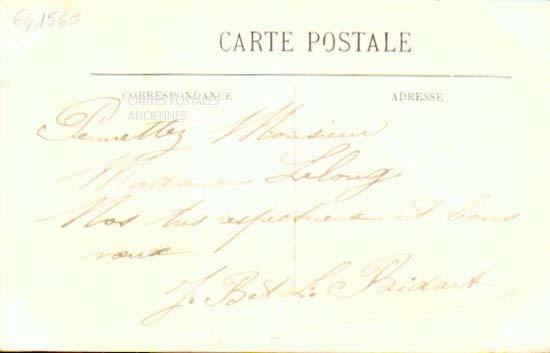 641560
CARTE POSTALE
CORRESPONDANCE
ADRESSE
CARTES POSTALES
ANCIENNES
Permettez Monsieur
Madame Lelong
Nos très respectueux et bons
vœux
J. Bet L. Bidart